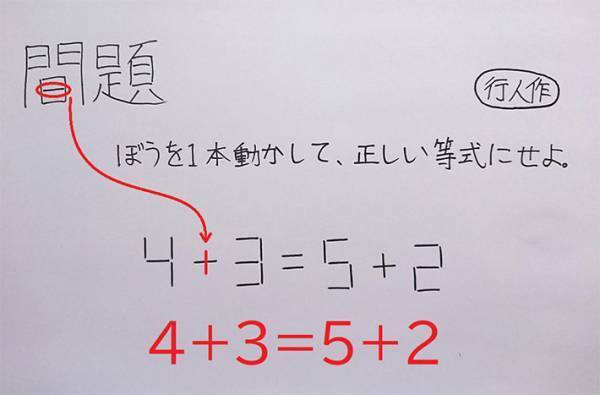 間題
行人作
ぼうを1本動かして、正しい等式にせよ。
4+3=5+2
4+3=5+2